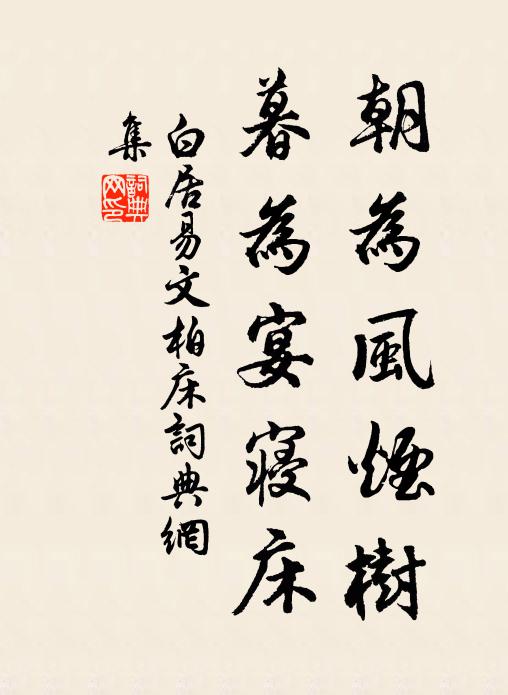 朝為風煙樹
暮為宴寝床
白居易文柏床詞典網
集
詞典網印